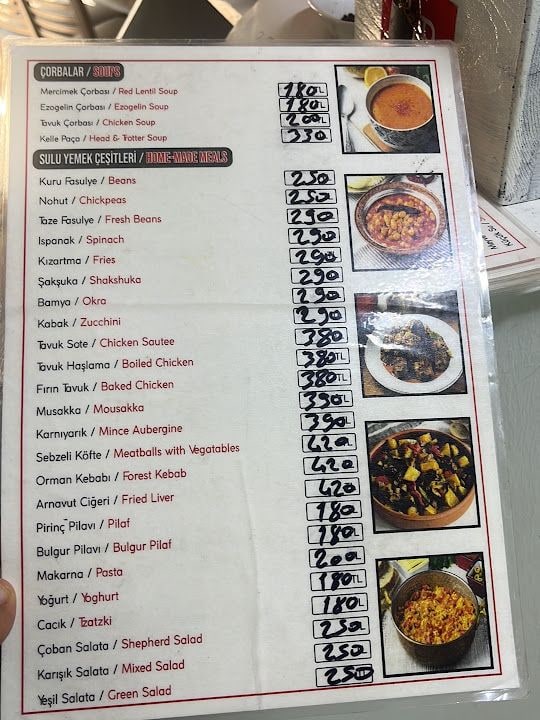 ÇORBALAR / SOUPS
Mercimek Çorbası / Red Lentil Soup 180TL
Ezogelin Çorbası / Ezogelin Soup 180TL
Tavuk Çorbası / Chicken Soup 200TL
Kelle Paça / Head & Trotter Soup 330
SULU YEMEK ÇEŞİTLERİ / HOME-MADE MEALS
Kuru Fasulye / Beans 250
Nohut / Chickpeas 250
Taze Fasulye / Fresh Beans 290
Ispanak / Spinach 290
Kızartma / Fries 290
Şakşuka / Shakshuka 290
Bamya / Okra 290
Kabak / Zucchini 290
Tavuk Sote / Chicken Sautee 380
Tavuk Haşlama / Boiled Chicken 380TL
Fırın Tavuk / Baked Chicken 380TL
Musakka / Mousakka 390
Karnıyarık / Mince Aubergine 390
Sebzeli Köfte / Meatballs with Vegatables 420
Orman Kebabı / Forest Kebab 420
Arnavut Ciğeri / Fried Liver 420
Pirinç Pilavı / Pilaf 180
Bulgur Pilavı / Bulgur Pilaf 180
Makarna / Pasta 200
Yoğurt / Yoghurt 180TL
Cacık / Tzatzki 180
Çoban Salata / Shepherd Salad 250
Karışık Salata / Mixed Salad 250
Yeşil Salata / Green Salad 250